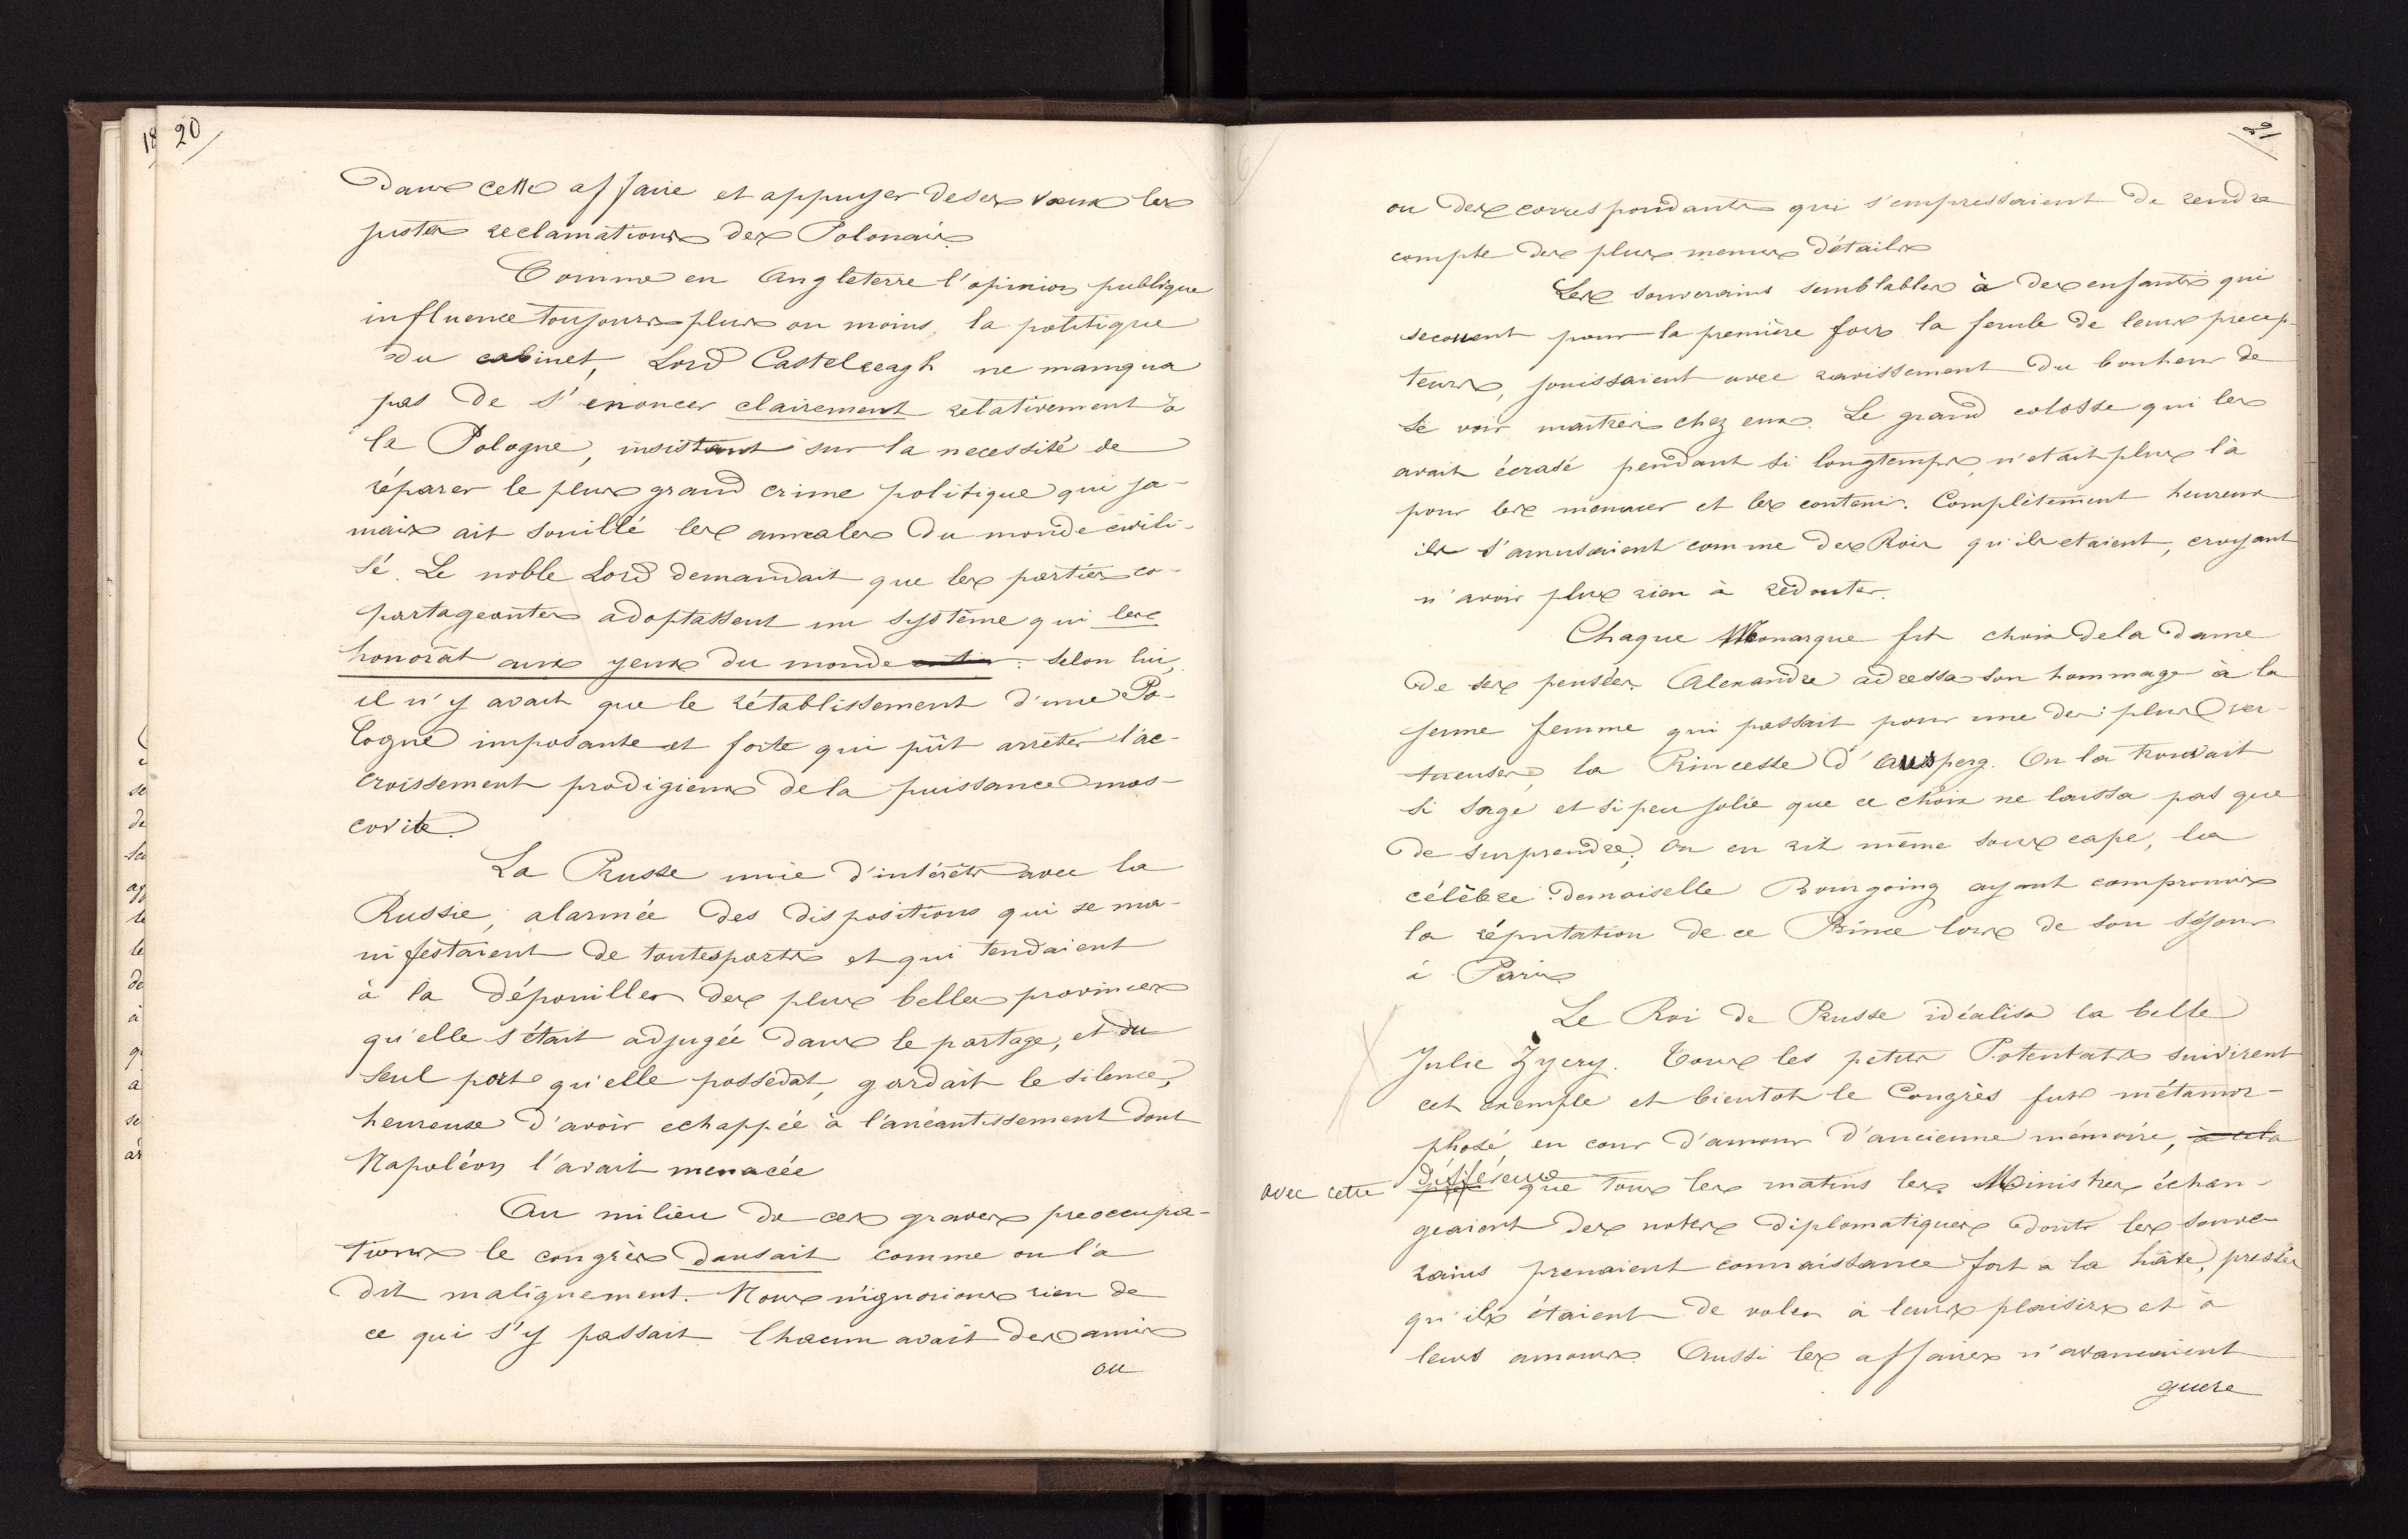 20
dans cette affaire et appuyer de ses vœux les
justes reclamations des Polonais
Comme en Angleterre l'opinion publique
influence toujours plus ou moins, la politique
du cabinet, Lord Castelreagh ne manqua
pas de s'enoncer clairement relativement à
la Pologne, insistant sur la necessité de
réparer le plus grand crime politique qui ja-
mais ait souillé les annales du monde civili-
sé. Le noble Lord demandait que les parties co-
partageantes adoptassent un système qui les
honorât aux yeux du monde entier: selon lui,
il n'y avait que le rétablissement d'une Po-
logne imposante et forte qui pût arrêter l'ac-
croissement prodigieux de la puissance mos-
covite.
La Prusse unie d'intérêts avec la
Russie, alarmée des dispositions qui se ma-
nifestaient de toutes parts et qui tendaient
à la dépouiller des plus belles provinces
qu'elle s'était adjugée dans le partage, et du
seul port qu'elle possedat, gardait le silence,
heureuse d'avoir echappée à l'anéantissement dont
Napoléon l'avait menacée
Au milieu de ces graves preoccupa-
tions le congrès dansait comme on l'a
dit malignement. Nous n'ignorions rien de
ce qui s'y passait Chacun avait des amis
ou
21
ou des correspondants qui s'empressaient de rendre
compte des plus menus détails
Les souverains semblables à des enfants qui
secouent pour la première fois la ferule de leurs precep-
teurs, jouissaient avec ravissement du bonheur de
se voir maitres chez eux. Le grand colosse qui les
avait écrasé pendant si longtemps n'etait plus là
pour les menacer et les contenir. Complètement heureux
ils s'amusaient comme des Rois qu'ils etaient, croyant
n'avoir plus rien à redouter.
Chaque Monarque fit choix de la dame
de ses pensées. Alexandre adressa son hommage à la
jeune femme qui passait pour une des plus ver-
tueuses, la Princesse d'Ausperg. On la trouvait
si sage et si peu jolie que ce choix ne laissa pas que
de surprendre; on en rit même sous cape, la
célèbre demoiselle Bourgoing ayant compromis
la réputation de ce Prince lors de son séjour
à Paris
Le Roi de Prusse idéalisa la belle
Julie Zyczy. Tous les petits Potentats suivirent
cet exemple et bientot le Congrès fut métamor-
phosé en cour d'amour d'ancienne mémoire, à cela
avec cette différence près que tous les matins les Ministres échan-
geaient des notes diplomatiques dont les souve
rains prenaient connaissance fort a la hâte, pressés
qu'ils étaient de voler à leurs plaisirs et à
leurs amours. Aussi les affaires n'avançaient
guere